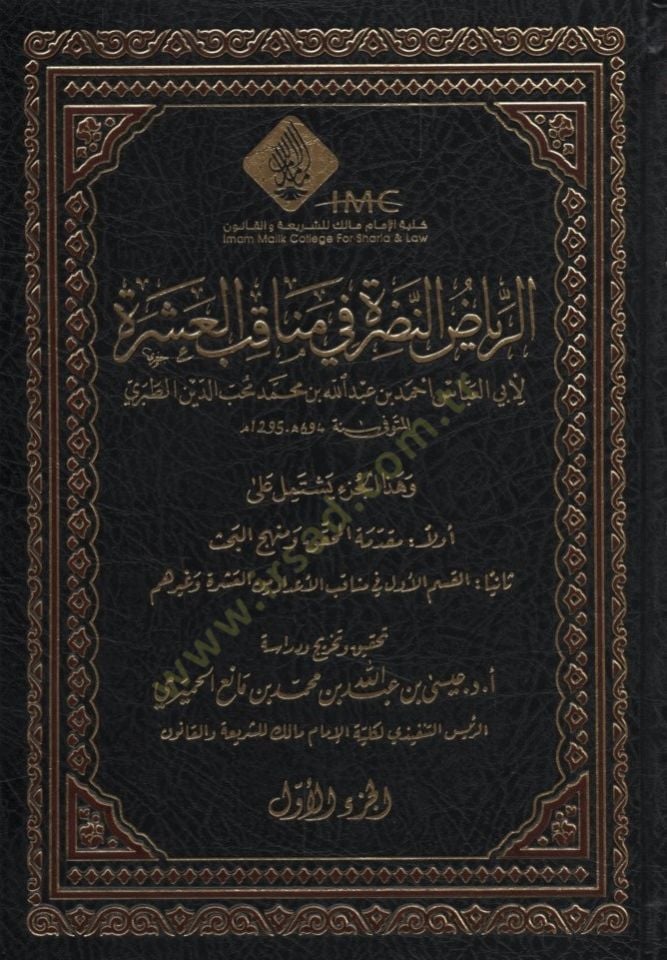 IMC
كلية الإمام مالك للشريعة والقانون
Imam Malik College For Sharia & Law
الرياض النضرة في مناقب العشرة
لأبي العباس أحمد بن عبد الله بن محمد محب الدين الطبري
المتوفى سنة ٦٩٤هـ - 1295م
وهذا الجزء يشتمل على
أولاً: مقدمة المحقق ومنهج البحث
ثانيًا: القسم الأول في مناقب الأعداد من العشرة وغيرهم
تحقيق وتخريج ودراسة
أ.د. عيسى بن عبد الله بن محمد بن مانع الحميري
الرئيس التنفيذي لكلية الإمام مالك للشريعة والقانون
الجزء الأول
www.irsad.com.tr